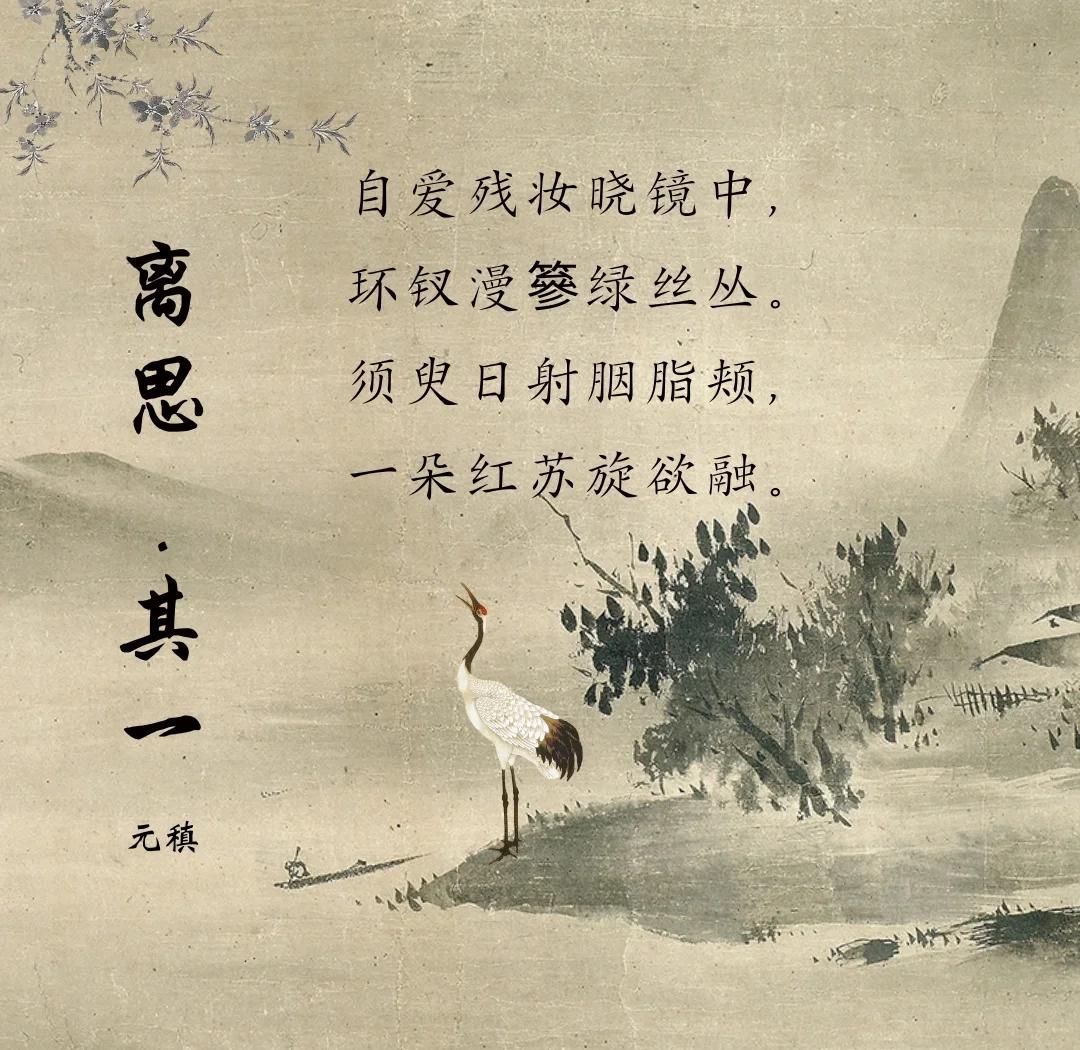 离思·其一
元稹
自爱残妆晓镜中，
环钗漫篸绿丝丛。
须臾日射胭脂颊，
一朵红苏旋欲融。